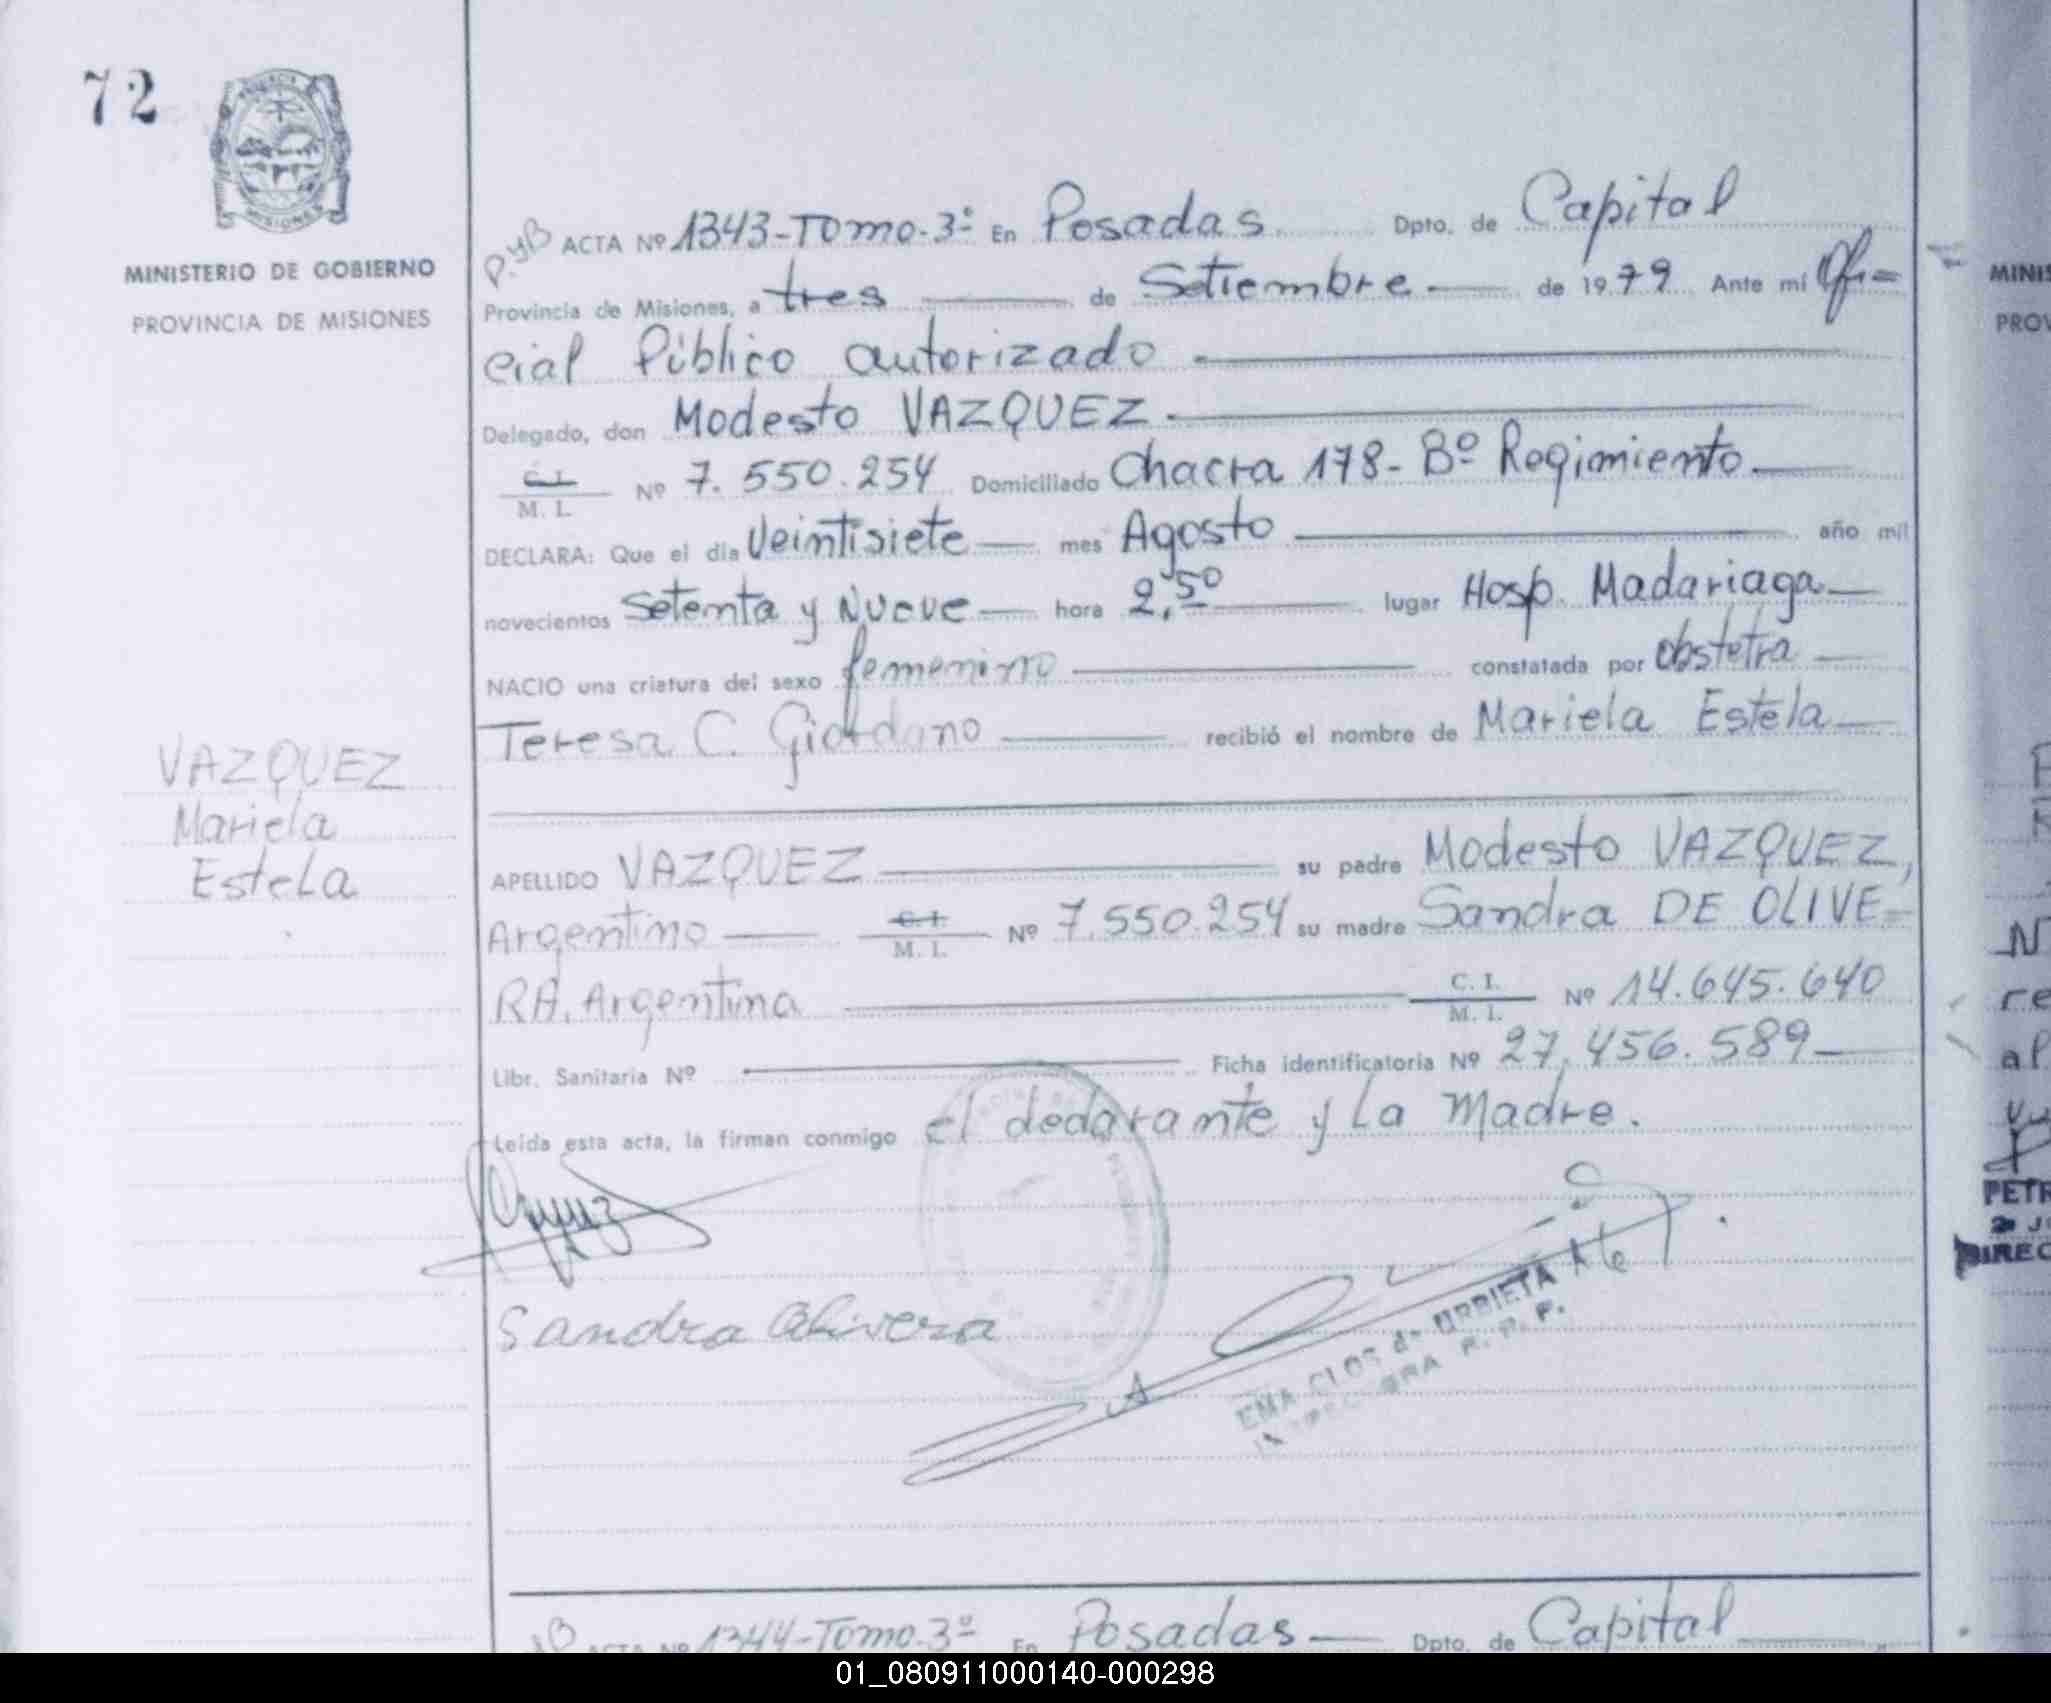 72
PROVINCIA
MISIONES
MINISTERIO DE GOBIERNO
PROVINCIA DE MISIONES
VAZQUEZ
Mariela
Estela
P.yB ACTA Nº 1343-Tomo-3º En Posadas Dpto. de Capital
Provincia de Misiones, a tres de Setiembre de 1979 Ante mí Ofi=
cial Público autorizado
Delegado, don Modesto VAZQUEZ
C. I.
M. I. Nº 7.550.254 Domiciliado Chacra 178-Bº Regimiento
DECLARA: Que el día Veintisiete mes Agosto año mil
novecientos Setenta y Nueve hora 2,50 lugar Hosp. Madariaga
NACIO una criatura del sexo femenino constatada por Obstetra
Teresa C. Giordano recibió el nombre de Mariela Estela
APELLIDO VAZQUEZ su padre Modesto VAZQUEZ,
Argentino C. I. M. I. Nº 7.550.254 su madre Sandra DE OLIVE=
RA, Argentina C. I. M. I. Nº 14.645.640
Libr. Sanitaria Nº Ficha identificatoria Nº 27.456.589
Leída esta acta, la firman conmigo el declarante y La Madre.
Sandra Olivera
EMA CLOS de URBIETA
R. P. P.
ACTA Nº 1344-Tomo-3º En Posadas Dpto. de Capital
MINIS
PROV
N
re
al
PETR
JO
DIREC
01_080911000140-000298